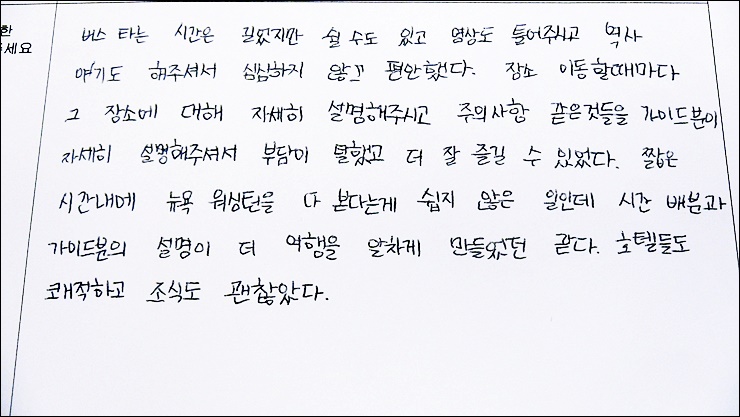 한
주세요
버스 타는 시간은 길었지만 쉴 수도 있고 영상도 틀어주시고 역사
얘기도 해주셔서 심심하지 않고 편안했다. 장소 이동할때마다
그 장소에 대해 자세히 설명해주시고 주의사항 같은것들을 가이드분이
자세히 설명해주셔서 부담이 덜했고 더 잘 즐길 수 있었다. 짧은
시간내에 뉴욕 워싱턴을 다 본다는게 쉽지 않은 일인데 시간 배분과
가이드분의 설명이 더 여행을 알차게 만들었던 같다. 호텔들도
쾌적하고 조식도 괜찮았다.